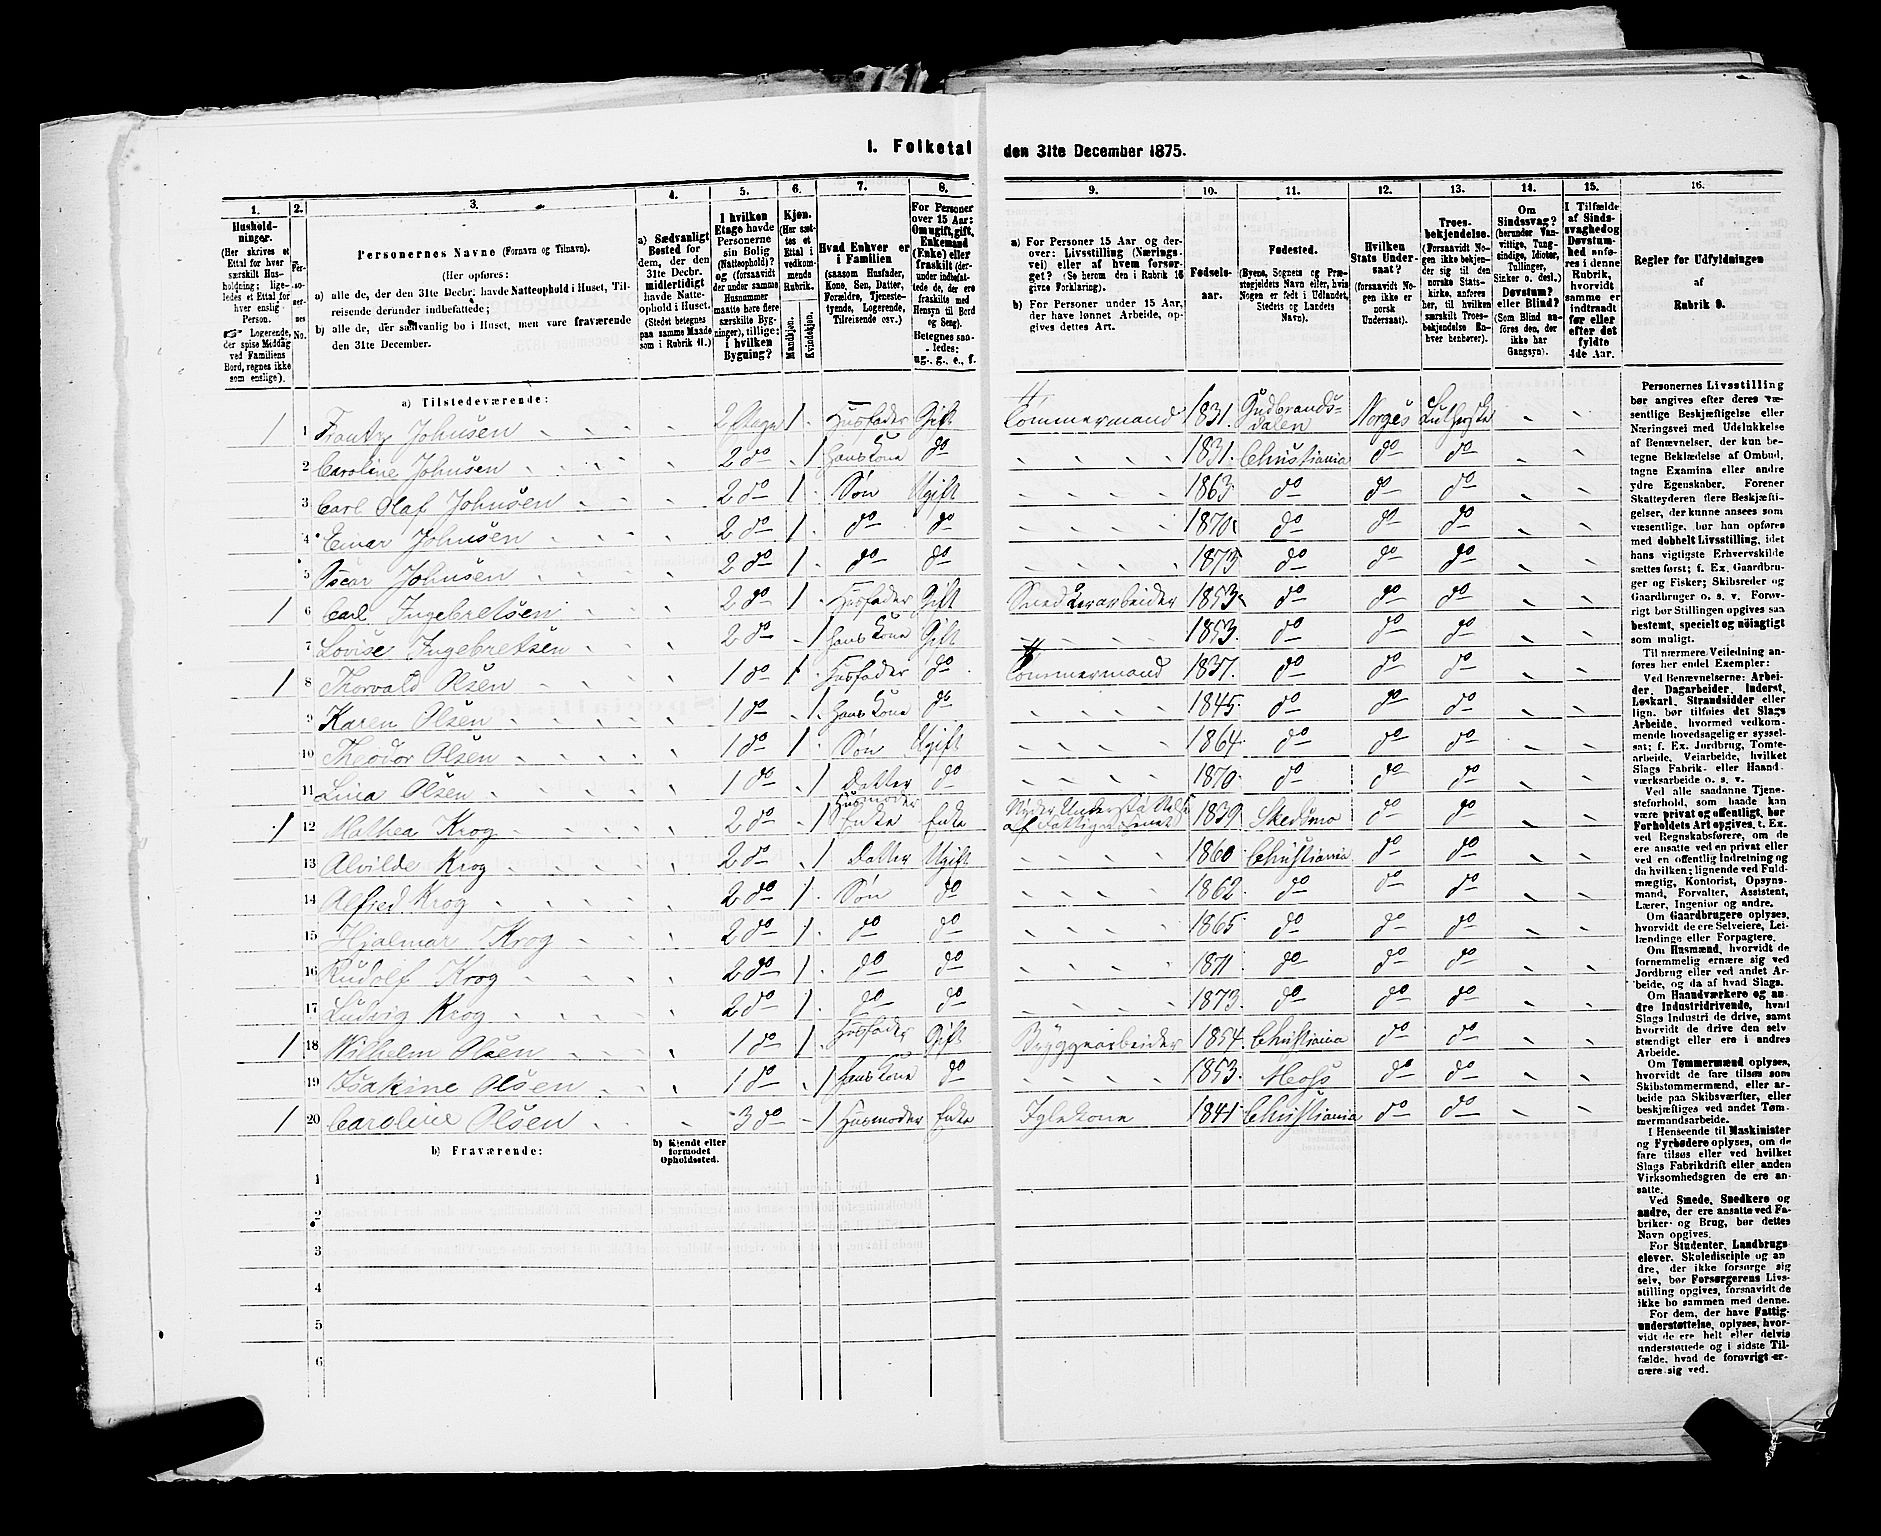 I. Folketal den 31te December 1875.
1. 2. 3. 4. 5. 6. 7. 8. 9. 10. 11. 12. 13. 14. 15. 16.
Hushold-
ninger.
(Her skrives et
Ettal for hver
særskilt Hus-
holdning; lige-
ledes et Ettal for
hver enslig
Person.
☞ Logerende,
der spise Middag
ved Familiens
Bord, regnes ikke
som enslige).
Per-
so-
ner-
nes
No.
Personernes Navne (Fornavn og Tilnavn).
(Her opføres:
a) alle de, der den 31te Decbr. havde Natteophold i Huset, Til-
reisende derunder indbefattede;
b) alle de, der sædvanlig bo i Huset, men vare fraværende
den 31te December.
a) Sædvanligt
Bosted for
dem, der den
31te Decbr.
midlertidigt
havde Natte-
ophold i Huset.
(Stedet betegnes
paa samme Maade
som i Rubrik 11.)
I hvilken
Etage havde
Personerne
sin Bolig
(Natteophold)?
og (forsaavidt
der under samme
Husnummer
maatte høre flere
særskilte Byg-
ninger), tillige:
i hvilken
Bygning?
Kjøn.
(Her sæt-
tes et
Ettal i
vedkom-
mende
Rubrik.
Mandkjøn.
Kvindekjøn.
Hvad Enhver er
i Familien
(saasom Husfader,
Kone, Søn, Datter,
Forældre, Tjeneste-
tyende, Logerende,
Tilreisende osv.)
For Personer
over 15 Aar:
Om ugift, gift,
Enkemand
(Enke) eller
fraskilt (der-
under indbefat-
tede de, der ere
fraskilte med
Hensyn til Bord
og Seng).
Betegnes saa-
ledes:
ug., g., e., f.
a) For Personer 15 Aar og der-
over: Livsstilling (Nærings-
vei) eller af hvem forsør-
get? (Se herom den i Rubrik 16
givne Forklaring).
b) For Personer under 15 Aar,
der have lønnet Arbeide, op-
gives dettes Art.
Fødsels-
aar.
Fødested.
(Byens, Sognets og Præ-
stegjeldets Navn eller, hvis
Nogen er født i Udlandet,
Stedets og Landets
Navn).
Hvilken
Stats Under-
saat?
(forsaavidt No-
gen ikke er
norsk
Undersaat).
Troes-
bekjendelse.
(Forsaavidt No-
gen ikke bekjen-
der sig til den
norske Stats-
kirke, anføres
her, til hvilken
særskilt Troes-
bekjendelse En-
hver henhører).
Om
Sindssvag?
(herunder Van-
vittige, Tung-
sindige, Idioter,
Tullinger,
Sinker o. desl.)
Døvstum?
eller Blind?
(Som Blind an-
føres den, der
ikke har
Gangsyn).
I Tilfælde
af Sinds-
svaghed og
Døvstum-
hed anfø-
res i denne
Rubrik,
hvorvidt
samme er
indtraadt
før eller
efter det
fyldte
4de Aar.
Regler for Udfyldningen
af
Rubrik 9.
a) Tilstedeværende:
1 1 Frantz Johnsen 2 Etage 1 Husfader Gift Tømmermand 1831 Gudbrands-
dalen Norges Lutherske
2 Caroline Johnsen 2 do 1 Hans Kone do 1831 Christiania do do
3 Carl Olaf Johnsen 2 do 1 Søn Ugift 1863 do do do
4 Einar Johnsen 2 do 1 do do 1870 do do do
5 Oscar Johnsen 2 do 1 do do 1873 do do do
1 6 Carl Ingebretsen 2 do 1 Husfader Gift Snedkerarbeider 1853 do do do
7 Lovise Ingebretsen 2 do 1 Hans Kone Gift 1853 do do do
1 8 Thorvald Olsen 1 do 1 Husfader do Tømmermand 1837 do do do
9 Karen Olsen 1 do 1 Hans Kone do 1845 do do do
10 Theodor Olsen 1 do 1 Søn Ugift 1864 do do do
11 Lina Olsen 1 do 1 Datter do 1870 do do do
1 12 Mathea Krog 2 do 1 Husmoder
Enke Enke Nyder Understøttelse
af Fattigvæsenet 1839 Skedsmo do do
13 Alvilde Krog 2 do 1 Datter Ugift 1860 Christiania do do
14 Alfred Krog 2 do 1 Søn do 1862 do do do
15 Hjalmar Krog 2 do 1 do do 1865 do do do
16 Rudolf Krog 2 do 1 do do 1871 do do do
17 Ludvig Krog 2 do 1 do do 1873 do do do
1 18 Wilhelm Olsen 1 do 1 Husfader Gift Bryggearbeider 1854 Christiania do do
19 Isakine Olsen 1 do 1 Hans Kone do 1853 Moss do do
1 20 Caroline Olsen 3 do 1 Husmoder Enke Iglekone 1841 Christiania do do
b) Fraværende:
b) Kjendt eller
formodet
Opholdssted.
1
2
3
4
5
6
Personernes Livsstilling
bør angives efter deres væ-
sentlige Beskjæftigelse eller
Næringsvei med Udelukkelse
af Benævnelser, der kun be-
tegne Beklædelse af Ombud,
tagne Examina eller andre
ydre Egenskaber. Forener
Skatteyderen flere Beskjæfti-
gelser, der kunne ansees som
væsentlige, bør han opføres
med dobbelt Livsstilling, idet
hans vigtigste Erhvervskilde
sættes først; f. Ex. Gaardbru-
ger og Fisker; Skibsreder og
Gaardbruger o. s. v. Forøv-
rigt bør Stillingen opgives saa
bestemt, specielt og nøiagtigt
som muligt.
Til nærmere Veiledning an-
føres her endel Exempler:
Ved Benævnelserne: Arbei-
der, Dagarbeider, Inderst,
Løskarl, Strandsidder eller
lign. bør tilføies det Slags
Arbeide, hvormed vedkom-
mende hovedsagelig er syssel-
sat; f. Ex. Jordbrug, Tomte-
arbeide, Veiarbeide, hvilket
Slags Fabrik- eller Haand-
værksarbeide o. s. v.
Ved alle saadanne Tjene-
steforhold, som baade kan
være privat og offentligt, bør
Forholdets Art opgives, t. Ex.
ved Regnskabsførere, om de
ere ansatte ved en privat eller
ved en offentlig Indretning og
da hvilken; lignende ved Fuld-
mægtig, Kontorist, Opsyns-
mand, Forvalter, Assistent,
Lærer, Ingeniør og andre.
Om Gaardbrugere oplyses,
hvorvidt de ere Selveiere, Lei-
lændinge eller Forpagtere.
Om Husmænd, hvorvidt de
fornemmelig ernære sig ved
Jordbrug eller ved andet Ar-
beide, og da af hvad Slags.
Om Haandværkere og an-
dre Industridrivende, hvad
Slags Industri de drive, samt
hvorvidt de drive den selv
stændigt eller ere i andres
Arbeide.
Om Tømmermænd oplyses,
hvorvidt de fare tilsøs som
Skibstømmermænd, eller ar-
beide paa Skibsværfter, eller
beskjæftiges ved andet Tøm-
mermandsarbeide.
I Henseende til Maskinister
og Fyrbødere oplyses, om de
fare tilsøs eller ved hvilket
Slags Fabrikdrift eller anden
Virksomhedsgren de ere an-
satte.
Ved Smede, Snedkere og
andre, der ere ansatte ved Fa-
briker og Brug, bør dettes
Navn opgives.
For Studenter, Landbrugs-
elever, Skoledisciple og an-
dre, der ikke forsørge sig
selv, bør Forsørgerens Livs-
stilling opgives, forsaavidt de
ikke bo sammen med denne.
For dem, der have Fattig-
understøttelse, oplyses, hvor-
vidt de ere helt eller delvis
understøttede og i sidste Til-
fælde, hvad de forøvrigt er-
nære sig ved.